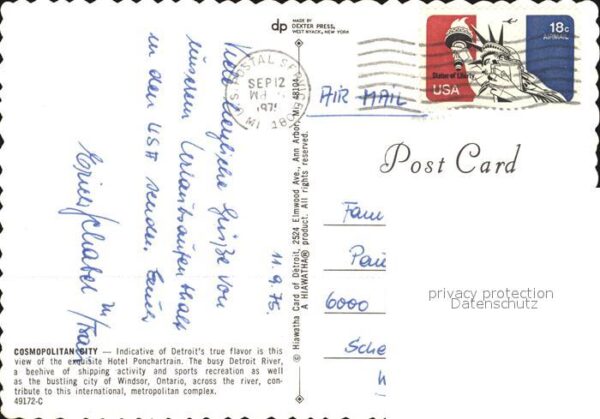 dp
MADE BY
DEXTER PRESS,
WEST NYACK, NEW YORK
U.S. POSTAL SERVICE
SEP 12
1975
MI 480
AIR MAIL
18c
AIRMAIL
Statue of Liberty
USA
Post Card
11.9.75.
Viele herzliche Grüße von
unserem Urlaubsaufenthalt
in den USA senden Euch
© Hiawatha Card of Detroit, 2524 Elmwood Ave., Ann Arbor, MI 48104
A HIAWATHA® product. All rights reserved.
Fam
Pau
6000
Sche
privacy protection
Datenschutz
COSMOPOLITAN CITY — Indicative of Detroit's true flavor is this
view of the exquisite Hotel Ponchartrain. The busy Detroit River,
a beehive of shipping activity and sports recreation as well
as the bustling city of Windsor, Ontario, across the river, con-
tribute to this international, metropolitan complex.
49172-C